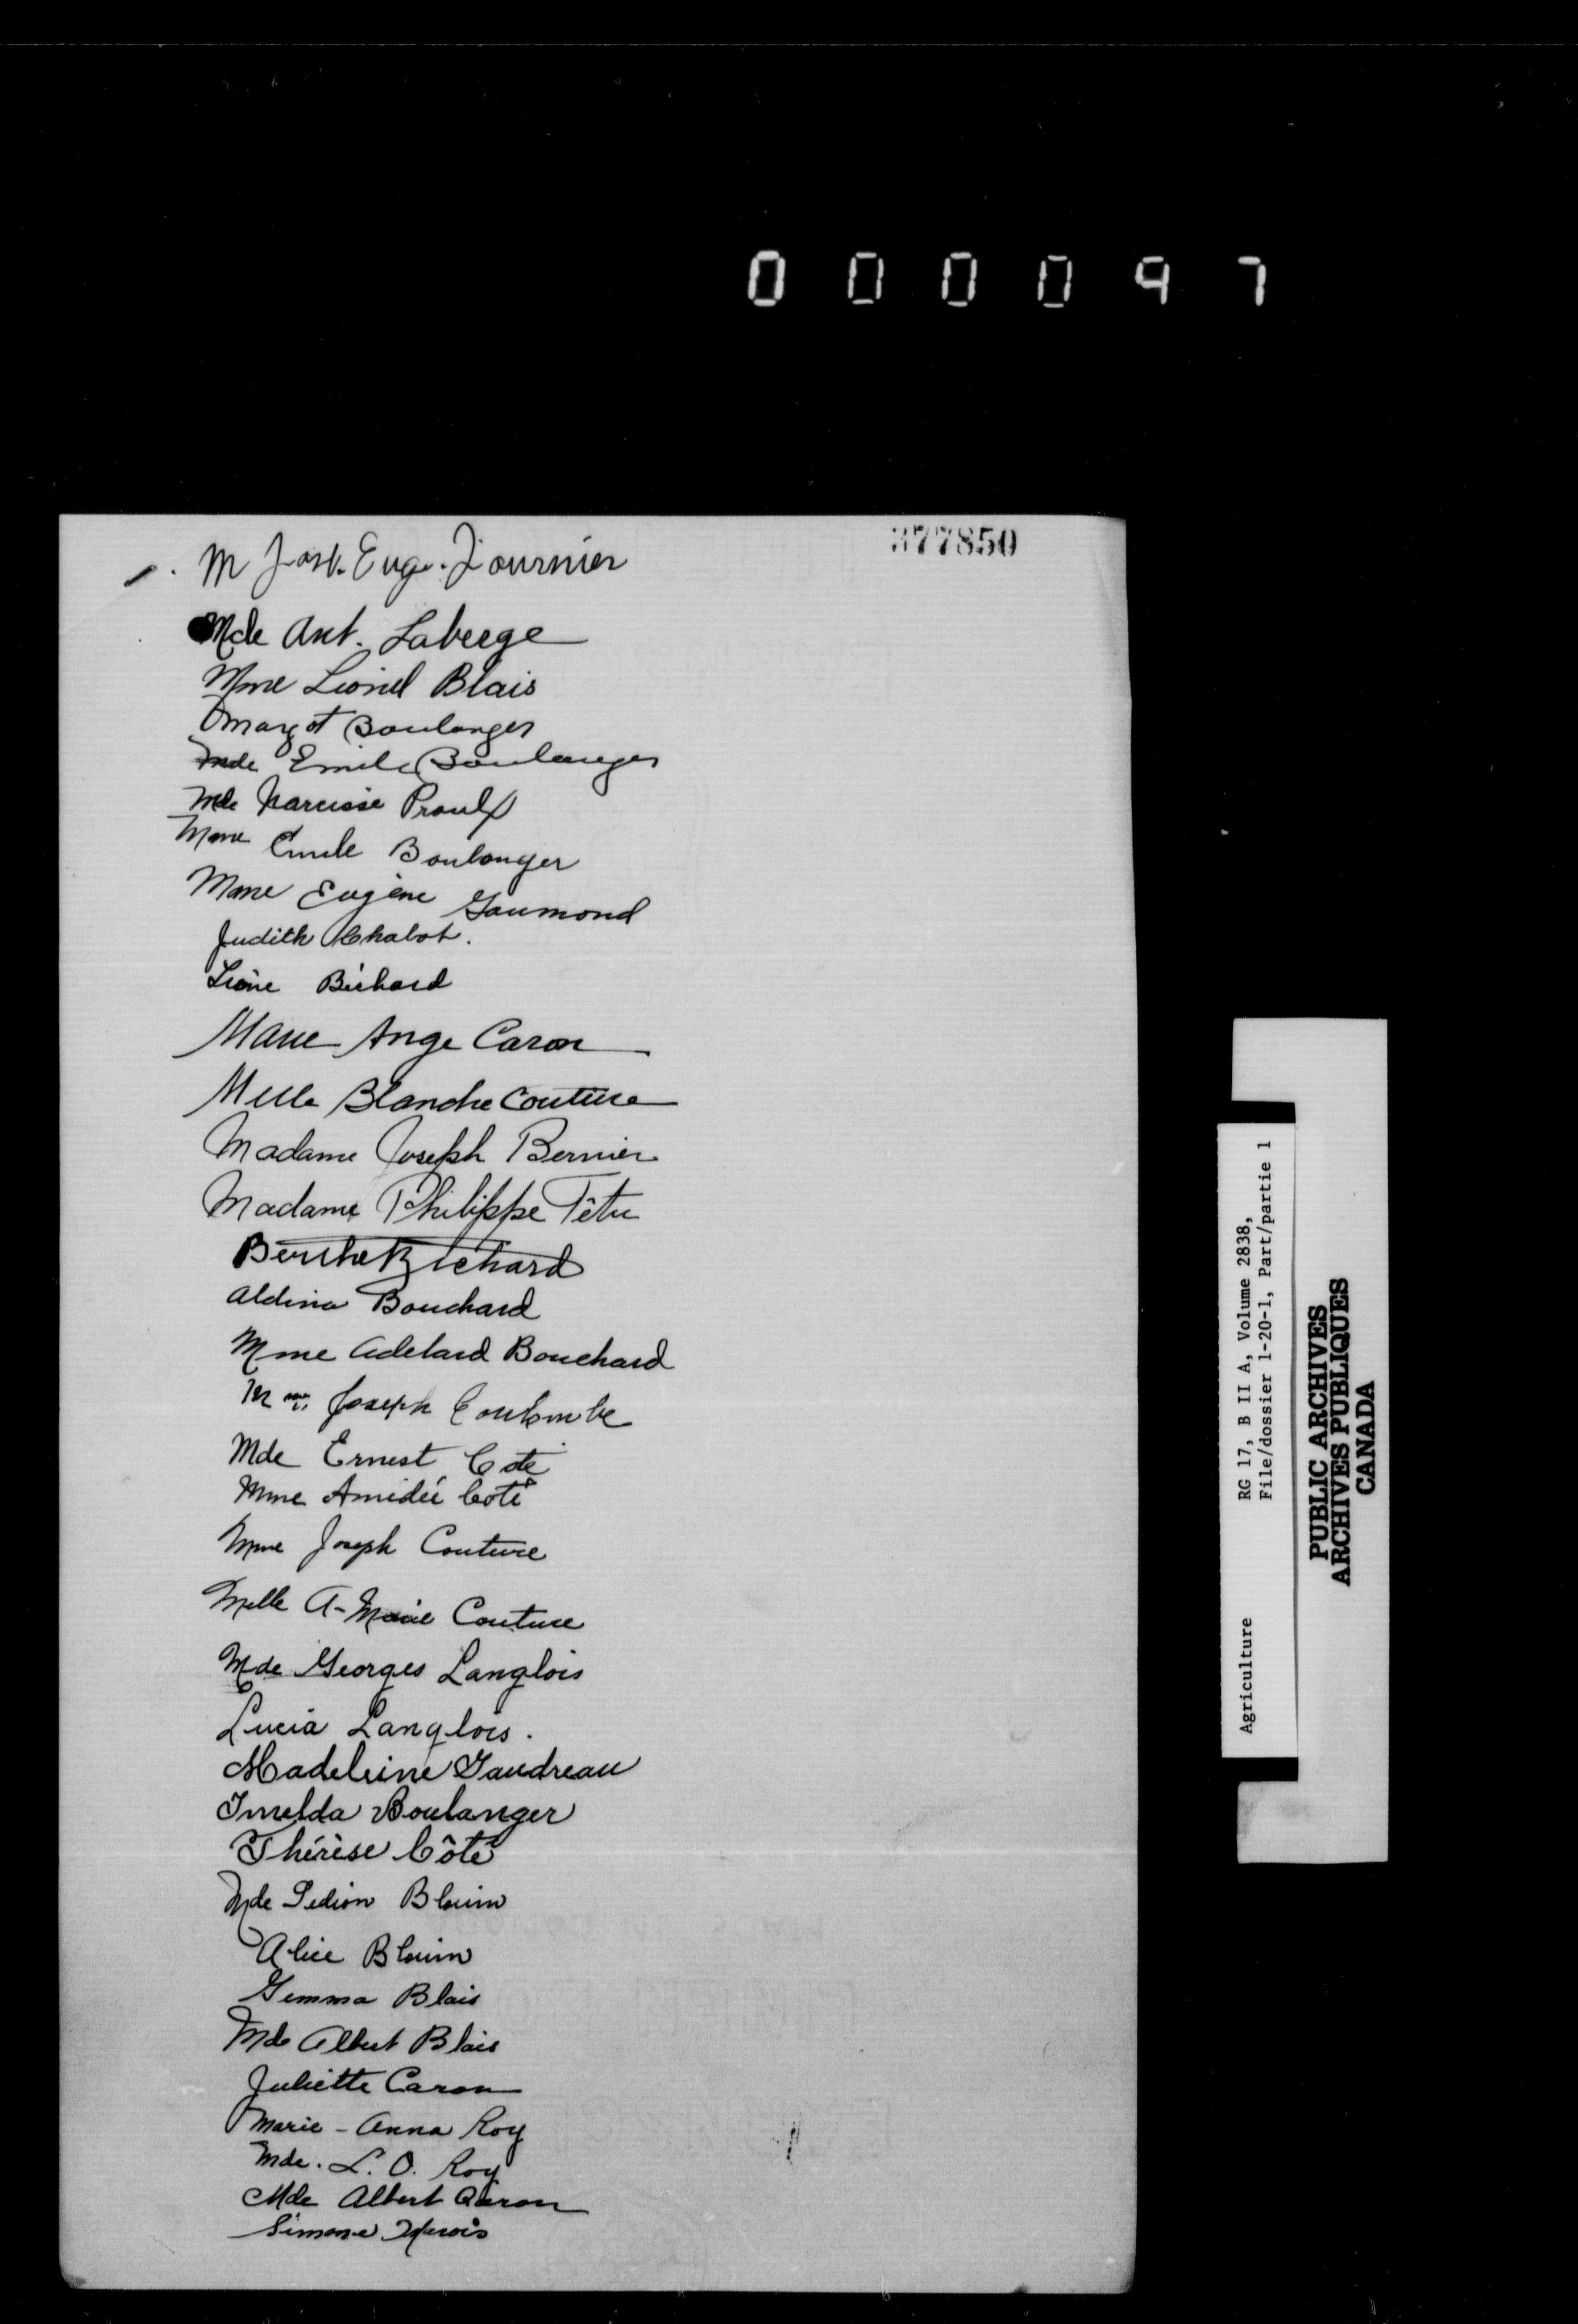 000097
377850
M Jos. Eug. Fournier
Mde Ant. Laberge
Mme Lionel Blais
Margot Boulanger
Mde Emile Boulanger
Mde Narcisse Proulx
Mme Emile Boulanger
Mme Eugène Gaumond
Judith Chabot.
Béchard
Marie Ange Caron
Melle Blanche Couture
Madame Joseph Bernier
Madame Philippe Têtu
Berthe Richard
Aldina Bouchard
Mme Adelard Bouchard
Mme Joseph Coulombe
Mde Ernest Coté
Mme Amidée Coté
Mme Joseph Couture
Melle A-Marie Couture
Mde Georges Langlois
Lucia Langlois.
Madeleine Gaudreau
Imelda Boulanger
Thérèse Côté
Mde Blouin
Alice Blouin
Gemma Blais
Mde Albert Blais
Juliette Caron
Marie - Anna Roy
Mde. L. O. Roy
Mde Albert Caron
Simone
Agriculture RG 17, B II A, Volume 2838,
File/dossier 1-20-1, Part/partie 1
PUBLIC ARCHIVES
ARCHIVES PUBLIQUES
CANADA